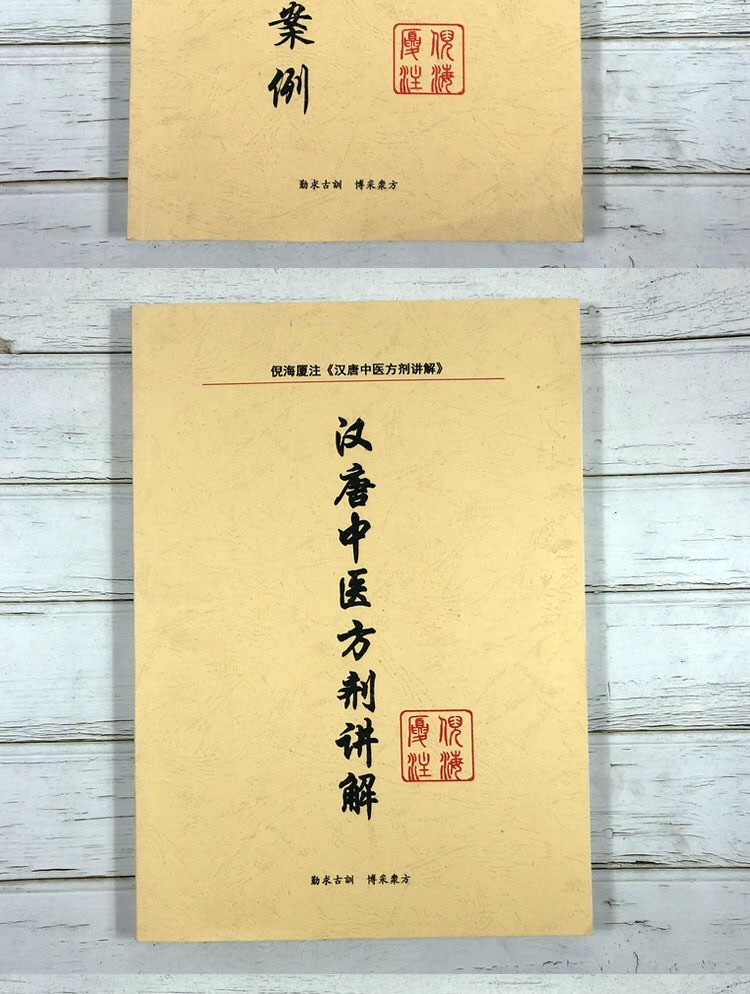 案例
倪海
厦注
勤求古訓 博采衆方
倪海厦注《汉唐中医方剂讲解》
汉唐中医方剂讲解
倪海
厦注
勤求古訓 博采衆方